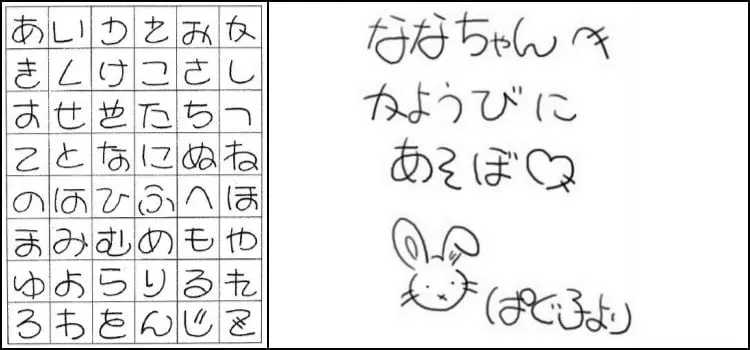 あいうえおか
きくけこさし
すせそたちつ
てとなにぬね
のはひふへほ
まみむめもや
ゆよらりるれ
ろわをんじ
ななちゃんへ
かようびに
あそぼ♡
(ぱど子より)